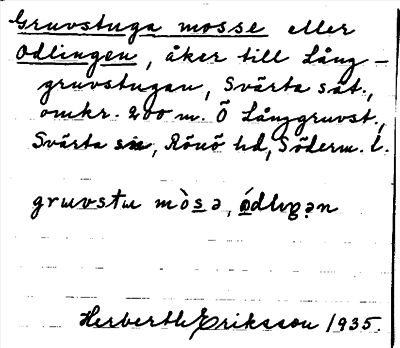 Gruvstuga mosse eller
Odlingen, åker till Lång-
gruvstugan, Svärta sät.,
omkr. 200 m. Ö Långgruvst.,
Svärta sn, Rönö hd, Söderm. l.
gruvstu mòsə, ódlɩŋən
Herberth Eriksson 1935.